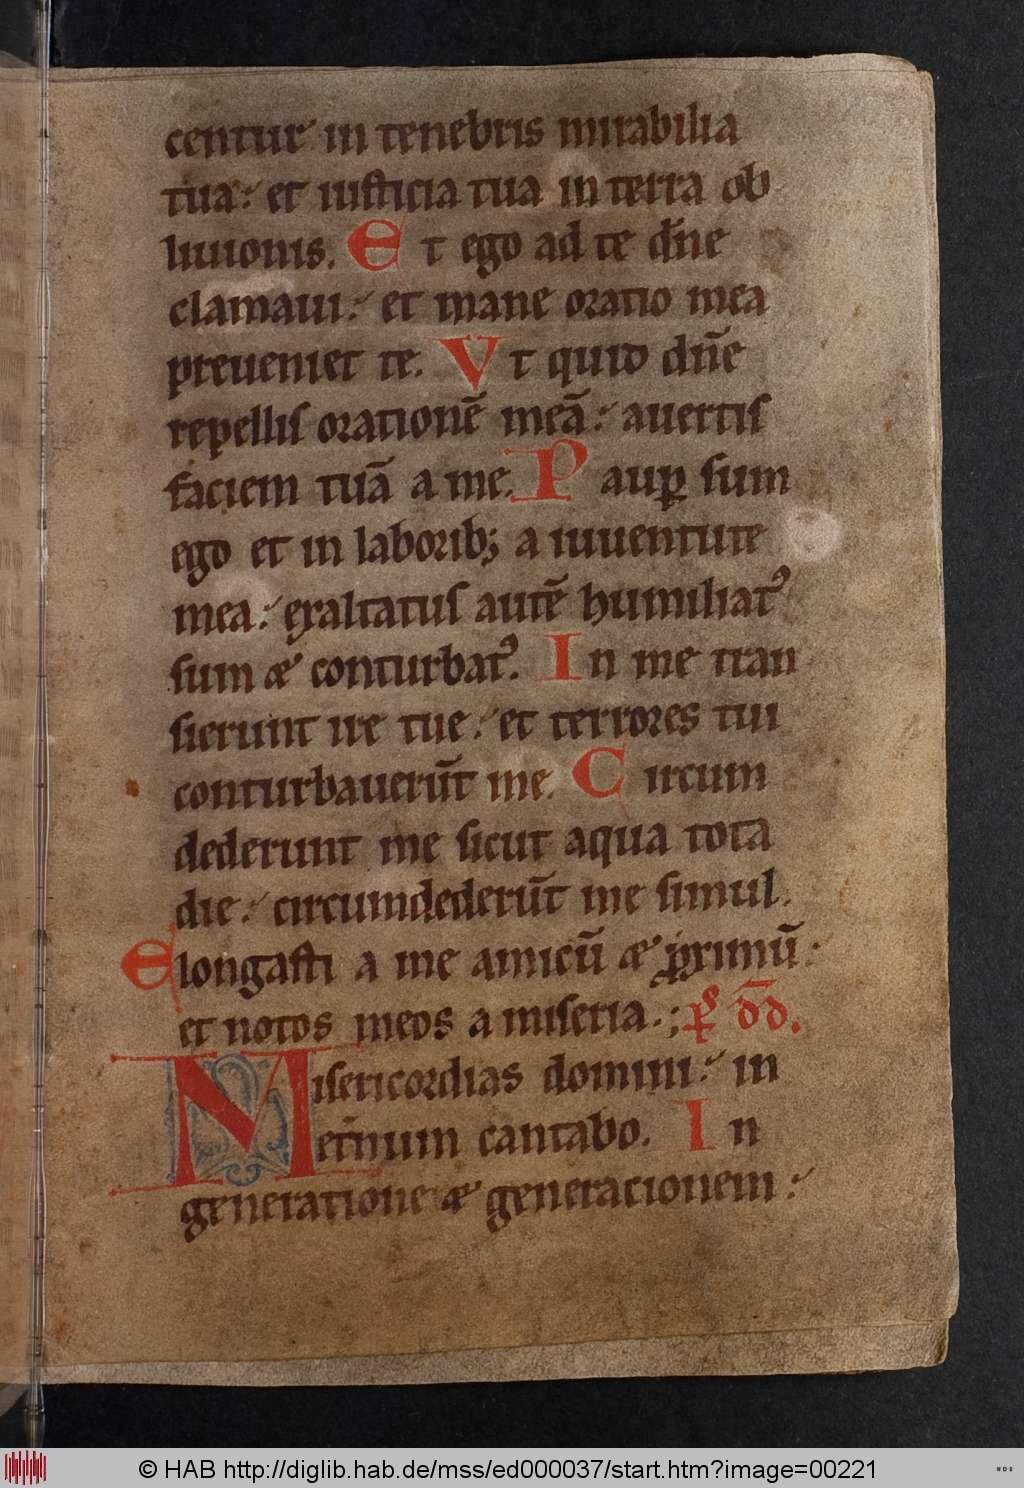 centur in tenebris mirabilia
tua: et iusticia tua in terra ob
liuionis. Et ego ad te dn̄e
clamaui: et mane oratio mea
preueniet te. Vt quid dn̄e
repellis orationē meā: auertis
faciem tuā a me. Paup̲ sum
ego et in laborib; a iuuentute
mea: exaltatus autē humiliatꝰ
sum æ conturbatꝰ. In me tran
sierunt ire tue: et terrores tui
conturbauerūt me. Circum
dederunt me sicut aqua tota
die: circumdederūt me simul.
Elongasti a me amicū æ ꝓximū:
et notos meos a miseria.; p̄s d̄d.
Misericordias domini: in
etn̄um cantabo. In
generatione æ generacionem:
© HAB http://diglib.hab.de/mss/ed000037/start.htm?image=00221